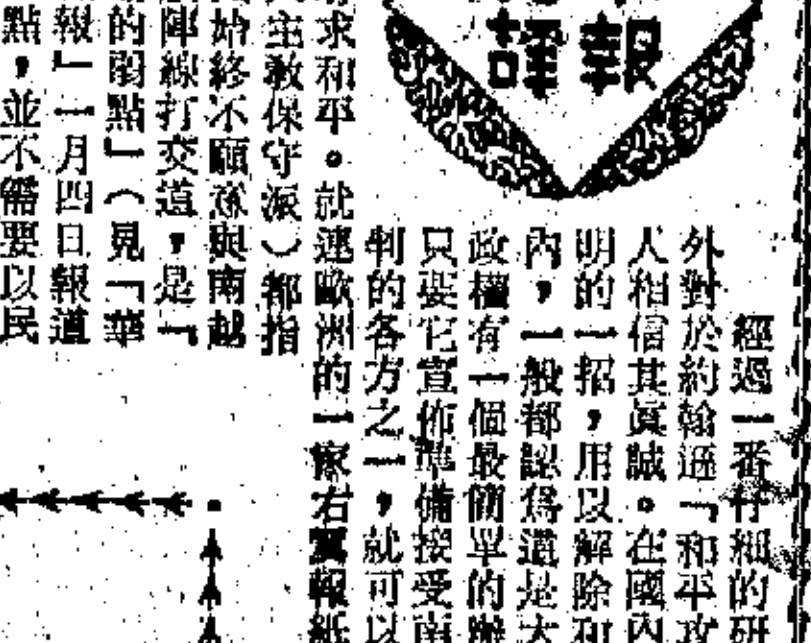 譯報
經過一番仔細的研
外對於約翰遜「和平攻
人相信其眞誠。在國內
明的一招，用以解除和
內，一般都認爲這是大
政權有一個最簡單的辦
只要它宣佈準備接受南
判的各方之一，就可以
求和平。就連歐洲的一家右翼報紙
主教保守派）都指
始終不願意與南越
陣線打交道，是「
的弱點」（見「華
報」一月四日報道
點，並不需要以民